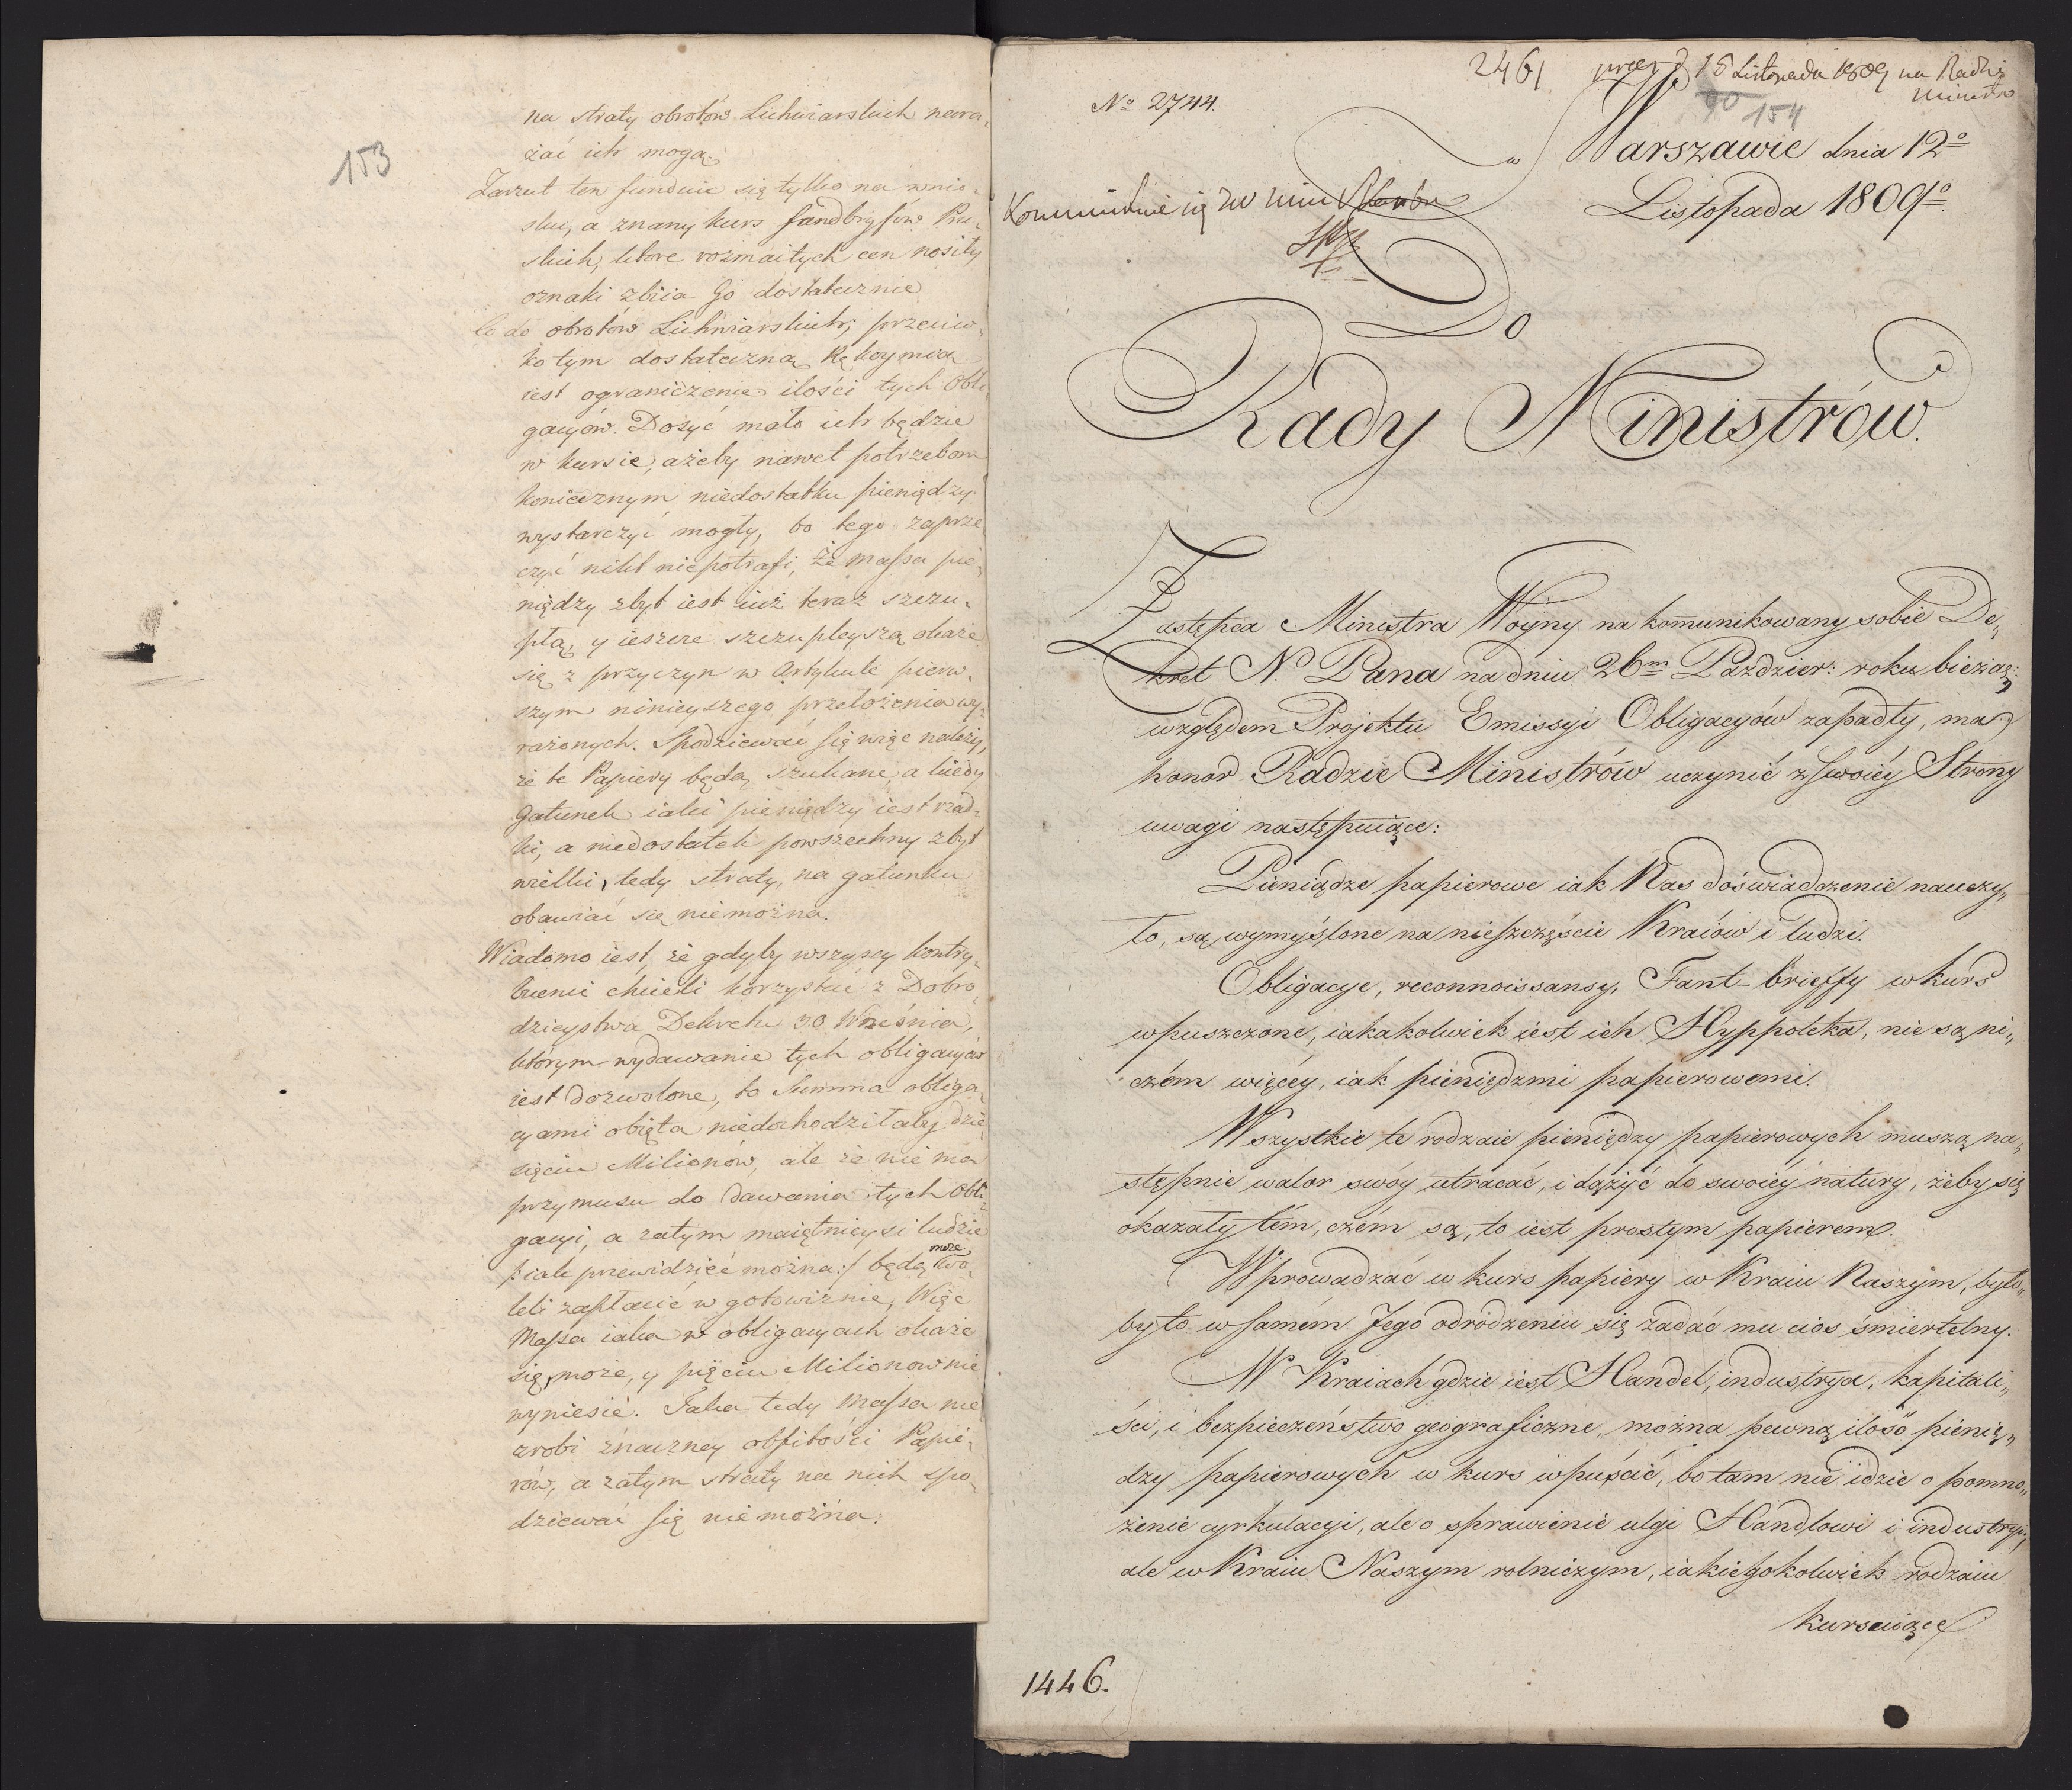 153
na straty obrotów Lichwiarskich nara,
żać ich mogą.
Zarzut ten funduie się tylko na wnio,
sku, a znany kurs fandbryfów Pru,
skich, które rozmaitych cen nosiły
oznaki zbiia Go dostatecznie
Co do obrotów Lichwiarskich, przeciw,
ko tym dostateczną Rękoymią
iest ograniczenie ilości tych Obli
gacyów. Dosyć mało ich będzie
w kursie, ażeby nawet potrzebom
koniecznym niedostatku pieniędzy
wystarczyć mogły, bo tego zaprze
czyć nikt niepotrafi, że massa pie,
niędzy zbyt iest iuż teraz szczu,
płą, y ieszcze szczupleyszą okaże
się z przyczyn w Artykule pierw,
szym ninieyszego przełożenia wy,
rażonych. Spodziewać się więc należy,
że te Papiery będą szukane, a kiedy
gatunek iaki pieniędzy iest rzad,
ki, a niedostatek powszechny zbyt
wielki, tedy straty, na gatunku
obawiać się niemożna.
Wiadomo iest, że gdyby wszyscy kontry,
buenci chcieli korzystać z Dobro,
dzieystwa Dekretu 30 Wrześnią,
którym wydawanie tych obligacyów
iest dozwolone, to Summa obliga,
cyami obięta niedochodziłaby dzie,
sięciu Milionów, ale że nie ma
przymusu do dawania tych Obli,
gacyi, a zatym maiętnieysi ludzie
/:iak przewidzieć można:/ będą może wo,
leli zapłacić w gotowiźnie, Więc
Massa iaka w obligacyach okaże
się może, y pięciu Milionow nie
wyniesie. Taka tedy Massa nie
zrobi znaczney obfitości Papie,
rów, a zatym straty na nich spo,
dziewać się niemożna.
2461 15 Listopada 1809 na Radzie
Ministr
90 154
No 2744.
w Warszawie dnia 12o
Listopada 1809o.
Kommunikuie się
Do
Rady Ministrów.
Zastępca Ministra Woyny na komunikowany sobie De,,
kret N. Pana na dniu 26m Paździer: roku bieżąc:
względem Projektu Emissyi Obligacyów zapadły, ma
honor Radzie Ministrów uczynić z swoiéy Strony
uwagi następuiące:
Pieniądze papierowe iak Nas doświadczenie nauczy,,
ło, są wymyślone na nieszczęście Kraiów i ludzi.
Obligacye, reconnoissansy, Fant-brieffy w kurs
wpuszczone, iakakolwiek iest ich Hyppoteka, nie są ni,,
czém więcéy, iak pieniędzmi papierowemi.
Wszystkie te rodzaie pieniędzy papierowych muszą na,,
stępnie walor swóy utracać, i dążyć do swoiéy natury, żeby się
okazały tém, czém są, to iest prostym papierem.
Wprowadzać w kurs papiery w Kraiu Naszym, było,,
by to w samém Jego odrodzeniu się zadać mu cios śmiertelny.
W Kraiach gdzie iest Handel, industrya, kapitali,,
ści, i bezpieczeństwo geograficzne, można pewną ilość pienię,,
dzy papierowych w kurs wpuścić, bo tam nie idzie o pomno,,
żenie cyrkulacyi, ale o sprawienie ulgi Handlowi i industryi,
ale w Kraiu Naszym rolniczym, iakiegokolwiek rodzaiu
kursuiące
1446.